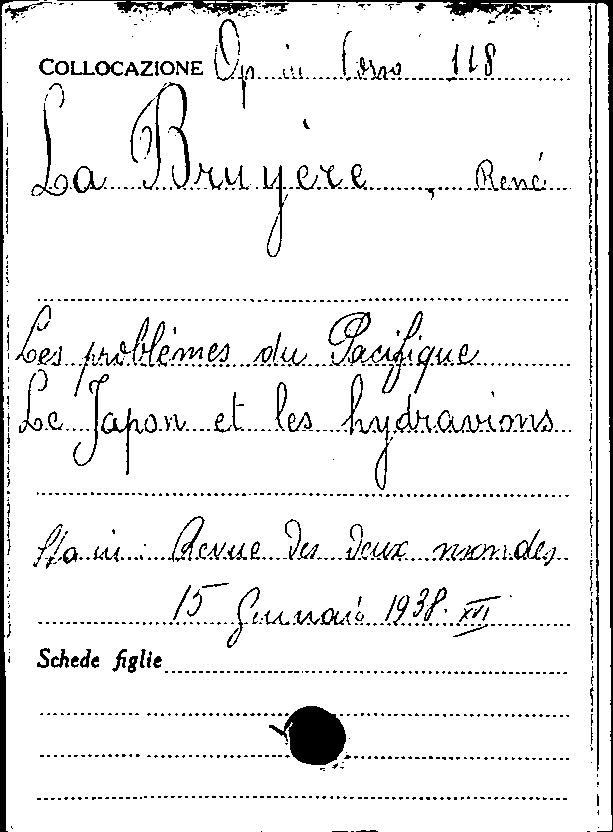 COLLOCAZIONE Op in Corso 118
La Bruyère, René
Les problèmes du Pacifique
Le Japon et les hydravions
Sta in: Revue des deux mondes
15 Gennaio 1938. XVI
Schede figlie